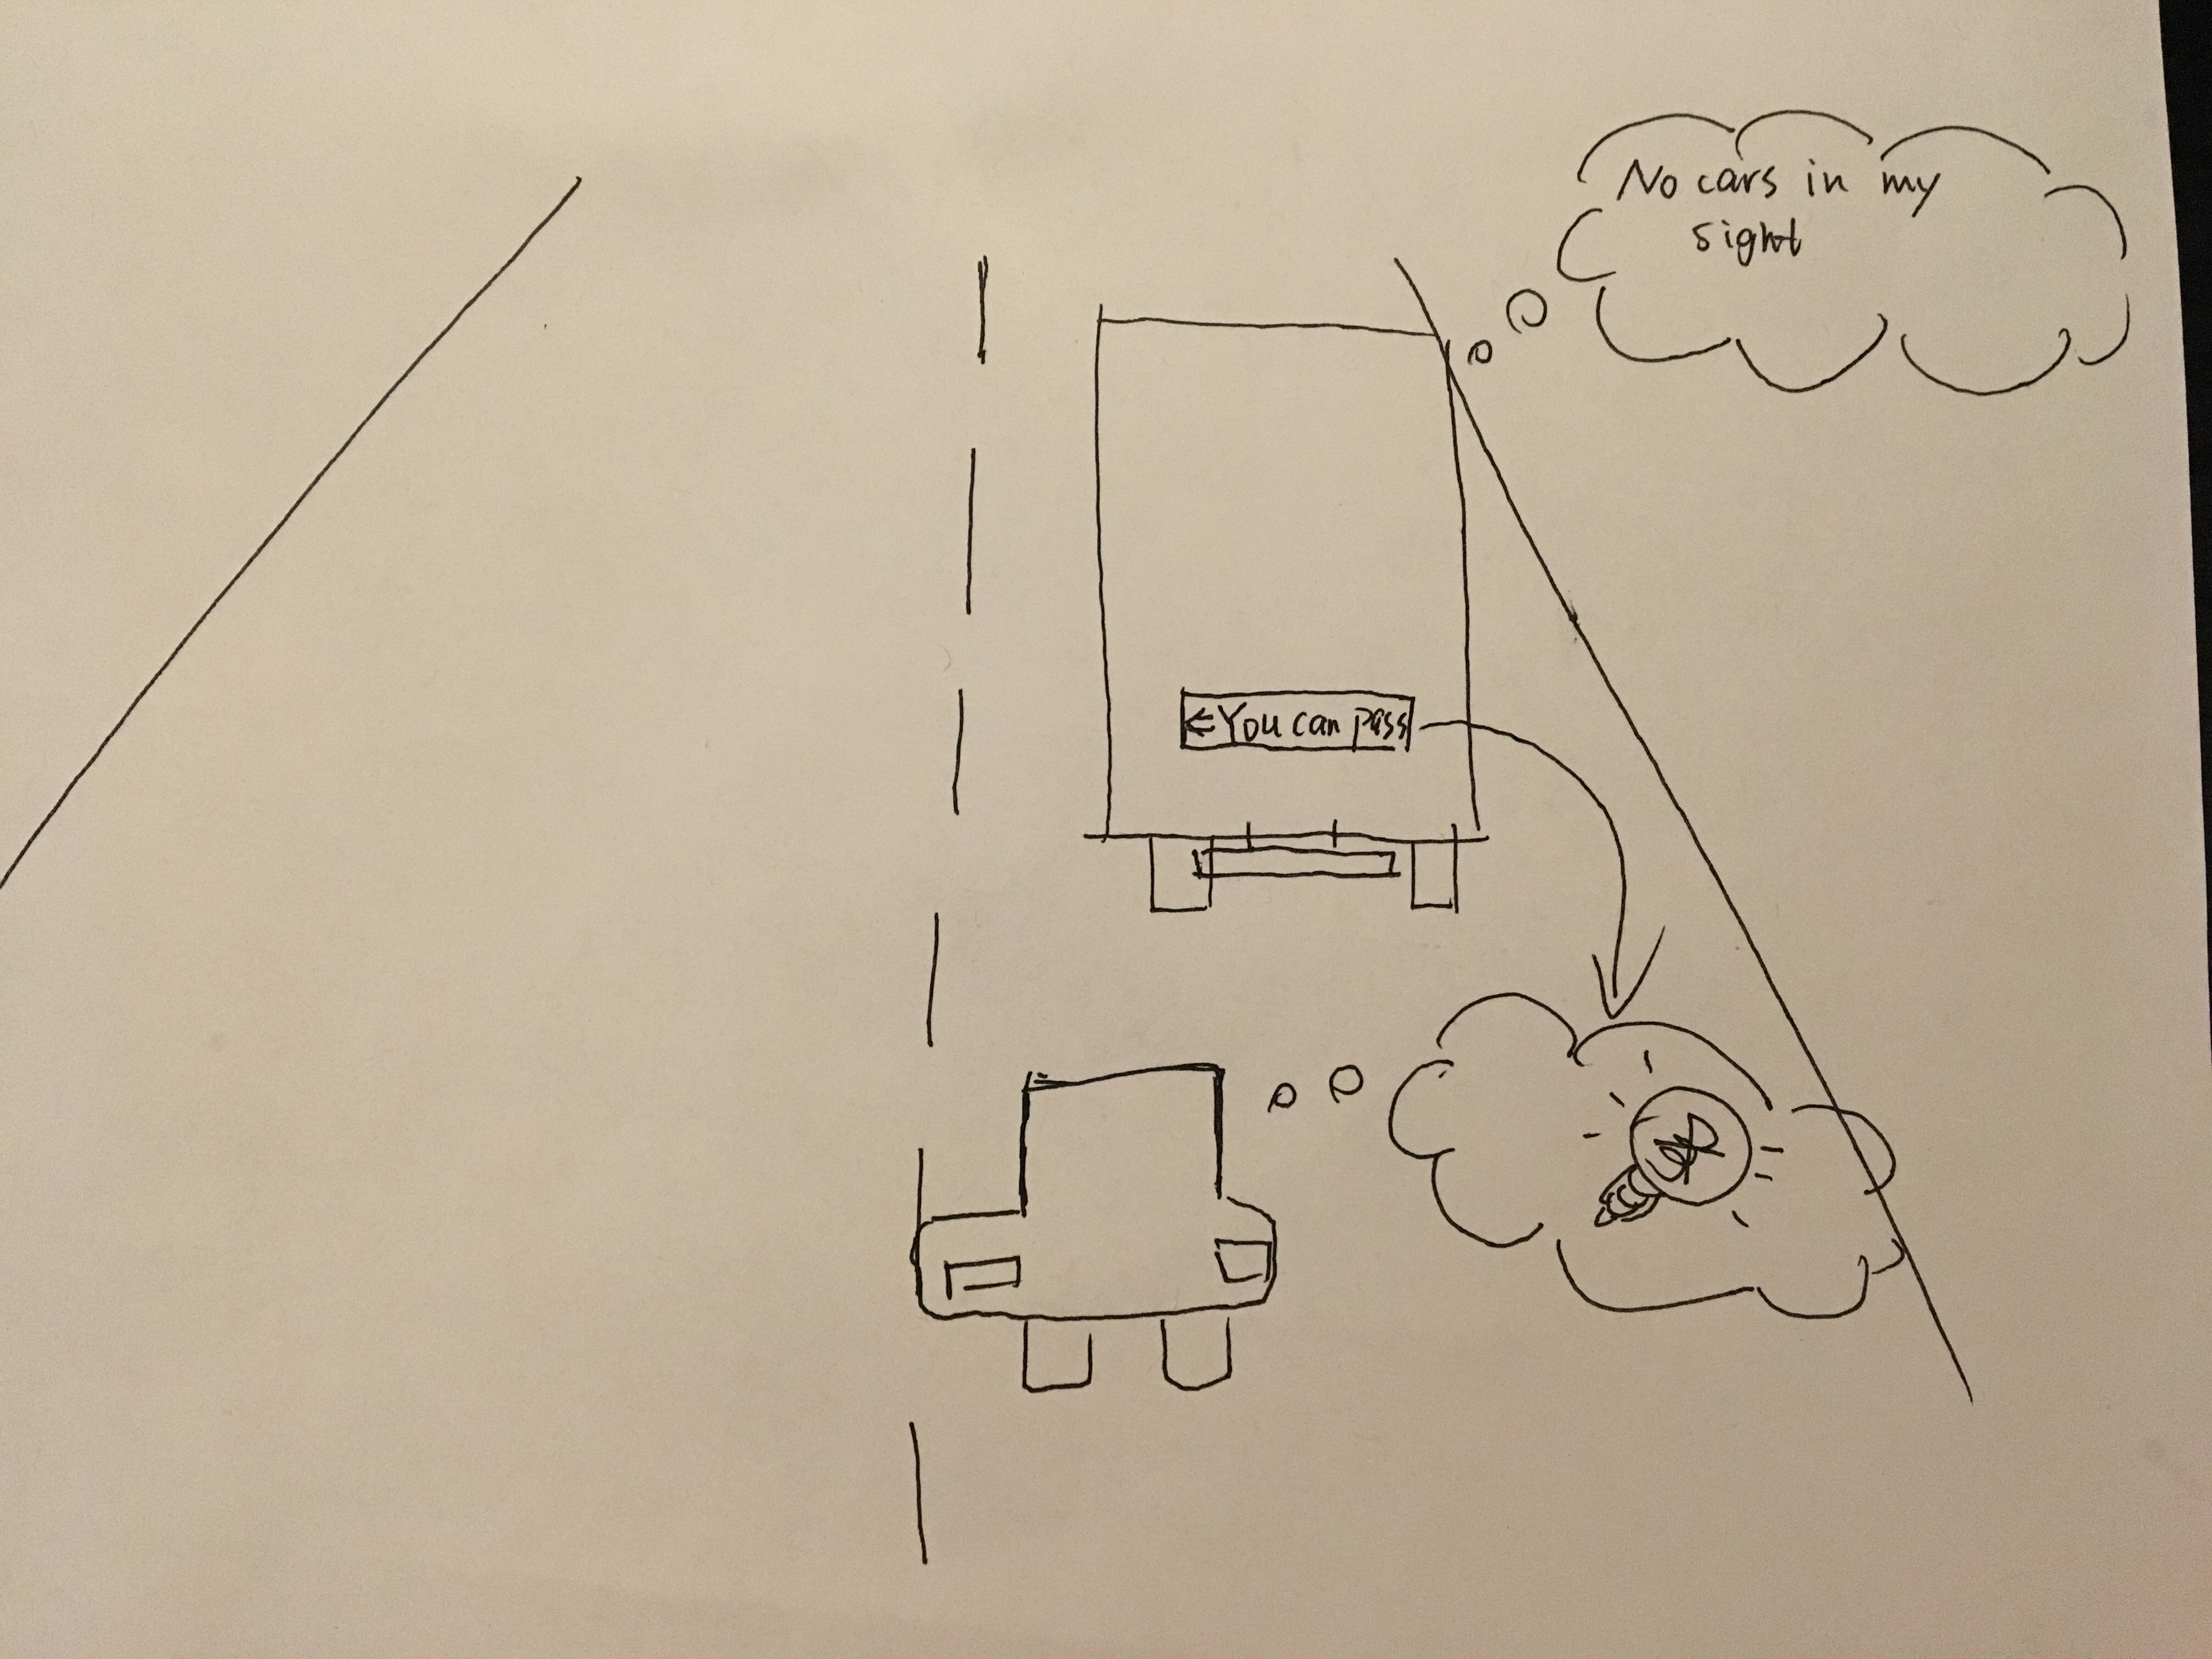 No cars in my
sight
← You can pass